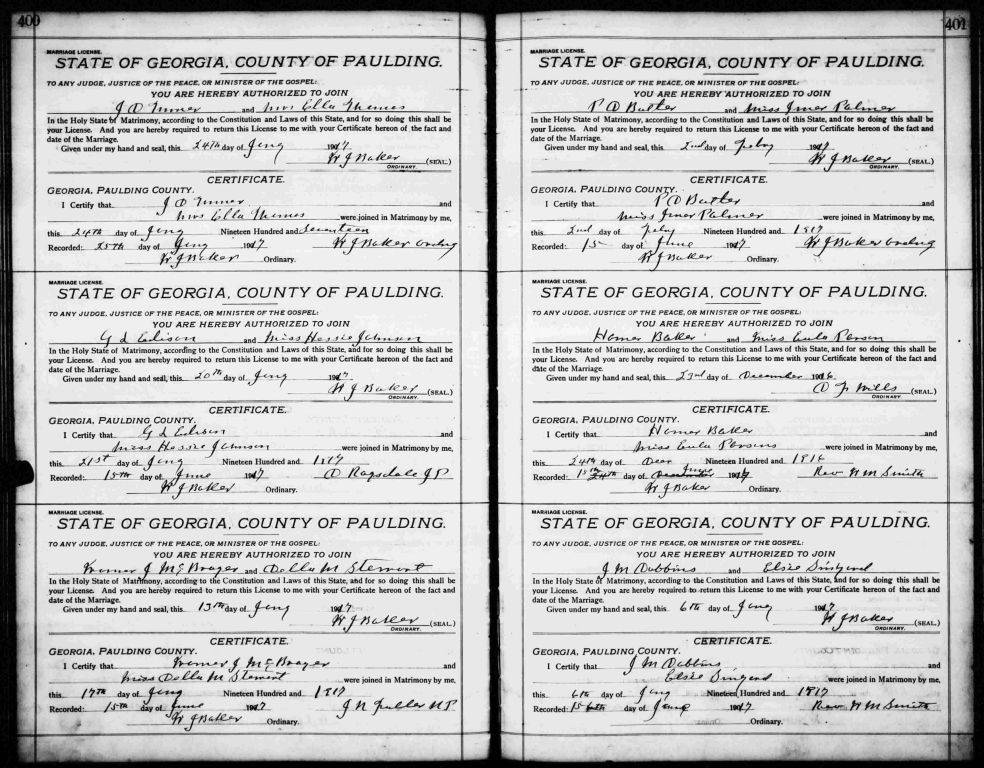 400
MARRIAGE LICENSE.
STATE OF GEORGIA, COUNTY OF PAULDING.
TO ANY JUDGE, JUSTICE OF THE PEACE, OR MINISTER OF THE GOSPEL:
YOU ARE HEREBY AUTHORIZED TO JOIN
J D and Mrs Ella
In the Holy State of Matrimony, according to the Constitution and Laws of this State, and for so doing this shall be
your License. And you are hereby required to return this License to me with your Certificate hereon of the fact and
date of the Marriage.
Given under my hand and seal, this 24th day of Jany 1917
W J Baker (SEAL.)
ORDINARY.
CERTIFICATE.
GEORGIA, PAULDING COUNTY.
I Certify that J D and
Mrs Ella were joined in Matrimony by me,
this 24th day of Jany Nineteen Hundred and Seventeen
Recorded: 25th day of Jany 1917 W J Baker
W J Baker Ordinary.
MARRIAGE LICENSE.
STATE OF GEORGIA, COUNTY OF PAULDING.
TO ANY JUDGE, JUSTICE OF THE PEACE, OR MINISTER OF THE GOSPEL:
YOU ARE HEREBY AUTHORIZED TO JOIN
G L Edison and Miss Hessie Johnson
In the Holy State of Matrimony, according to the Constitution and Laws of this State, and for so doing this shall be
your License. And you are hereby required to return this License to me with your Certificate hereon of the fact and
date of the Marriage.
Given under my hand and seal, this 20th day of Jany 1917
W J Baker (SEAL.)
ORDINARY.
CERTIFICATE.
GEORGIA, PAULDING COUNTY.
I Certify that G L Edison and
Miss Hessie Johnson were joined in Matrimony by me,
this 21st day of Jany Nineteen Hundred and 1917
Recorded: 15th day of June 1917 D Ragsdale J P
W J Baker Ordinary.
MARRIAGE LICENSE.
STATE OF GEORGIA, COUNTY OF PAULDING.
TO ANY JUDGE, JUSTICE OF THE PEACE, OR MINISTER OF THE GOSPEL:
YOU ARE HEREBY AUTHORIZED TO JOIN
J McBrayer and Della M Stewart
In the Holy State of Matrimony, according to the Constitution and Laws of this State, and for so doing this shall be
your License. And you are hereby required to return this License to me with your Certificate hereon of the fact and
date of the Marriage.
Given under my hand and seal, this 13th day of Jany 1917
W J Baker (SEAL.)
ORDINARY.
CERTIFICATE.
GEORGIA, PAULDING COUNTY.
I Certify that J McBrayer and
Miss Della M Stewart were joined in Matrimony by me,
this 17th day of Jany Nineteen Hundred and 1917
Recorded: 15th day of June 1917 J N Fuller N P
W J Baker Ordinary.
401
MARRIAGE LICENSE.
STATE OF GEORGIA, COUNTY OF PAULDING.
TO ANY JUDGE, JUSTICE OF THE PEACE, OR MINISTER OF THE GOSPEL:
YOU ARE HEREBY AUTHORIZED TO JOIN
P D Butler and Miss Palmer
In the Holy State of Matrimony, according to the Constitution and Laws of this State, and for so doing this shall be
your License. And you are hereby required to return this License to me with your Certificate hereon of the fact and
date of the Marriage.
Given under my hand and seal, this 2nd day of Feby 1917
W J Baker (SEAL.)
ORDINARY.
CERTIFICATE.
GEORGIA, PAULDING COUNTY.
I Certify that P D Butler and
Miss Palmer were joined in Matrimony by me,
this 2nd day of Feby Nineteen Hundred and 1917
Recorded: 15 day of June 1917 W J Baker
W J Baker Ordinary.
MARRIAGE LICENSE.
STATE OF GEORGIA, COUNTY OF PAULDING.
TO ANY JUDGE, JUSTICE OF THE PEACE, OR MINISTER OF THE GOSPEL:
YOU ARE HEREBY AUTHORIZED TO JOIN
Homer Baker and Miss Eula Person
In the Holy State of Matrimony, according to the Constitution and Laws of this State, and for so doing this shall be
your License. And you are hereby required to return this License to me with your Certificate hereon of the fact and
date of the Marriage.
Given under my hand and seal, this 23rd day of December 1916
D F Wills (SEAL.)
ORDINARY.
CERTIFICATE.
GEORGIA, PAULDING COUNTY.
I Certify that Homer Baker and
Miss Eula Persons were joined in Matrimony by me,
this 24th day of Decr Nineteen Hundred and 1916
Recorded: 15th day of June 1917 Rev W M Smith
W J Baker Ordinary.
MARRIAGE LICENSE.
STATE OF GEORGIA, COUNTY OF PAULDING.
TO ANY JUDGE, JUSTICE OF THE PEACE, OR MINISTER OF THE GOSPEL:
YOU ARE HEREBY AUTHORIZED TO JOIN
J M Dobbins and Elsie
In the Holy State of Matrimony, according to the Constitution and Laws of this State, and for so doing this shall be
your License. And you are hereby required to return this License to me with your Certificate hereon of the fact and
date of the Marriage.
Given under my hand and seal, this 6th day of Jany 1917
W J Baker (SEAL.)
ORDINARY.
CERTIFICATE.
GEORGIA, PAULDING COUNTY.
I Certify that J M Dobbins and
Elsie were joined in Matrimony by me,
this 6th day of Jany Nineteen Hundred and 1917
Recorded: 15 day of June 1917 Rev W M Smith
W J Baker Ordinary.